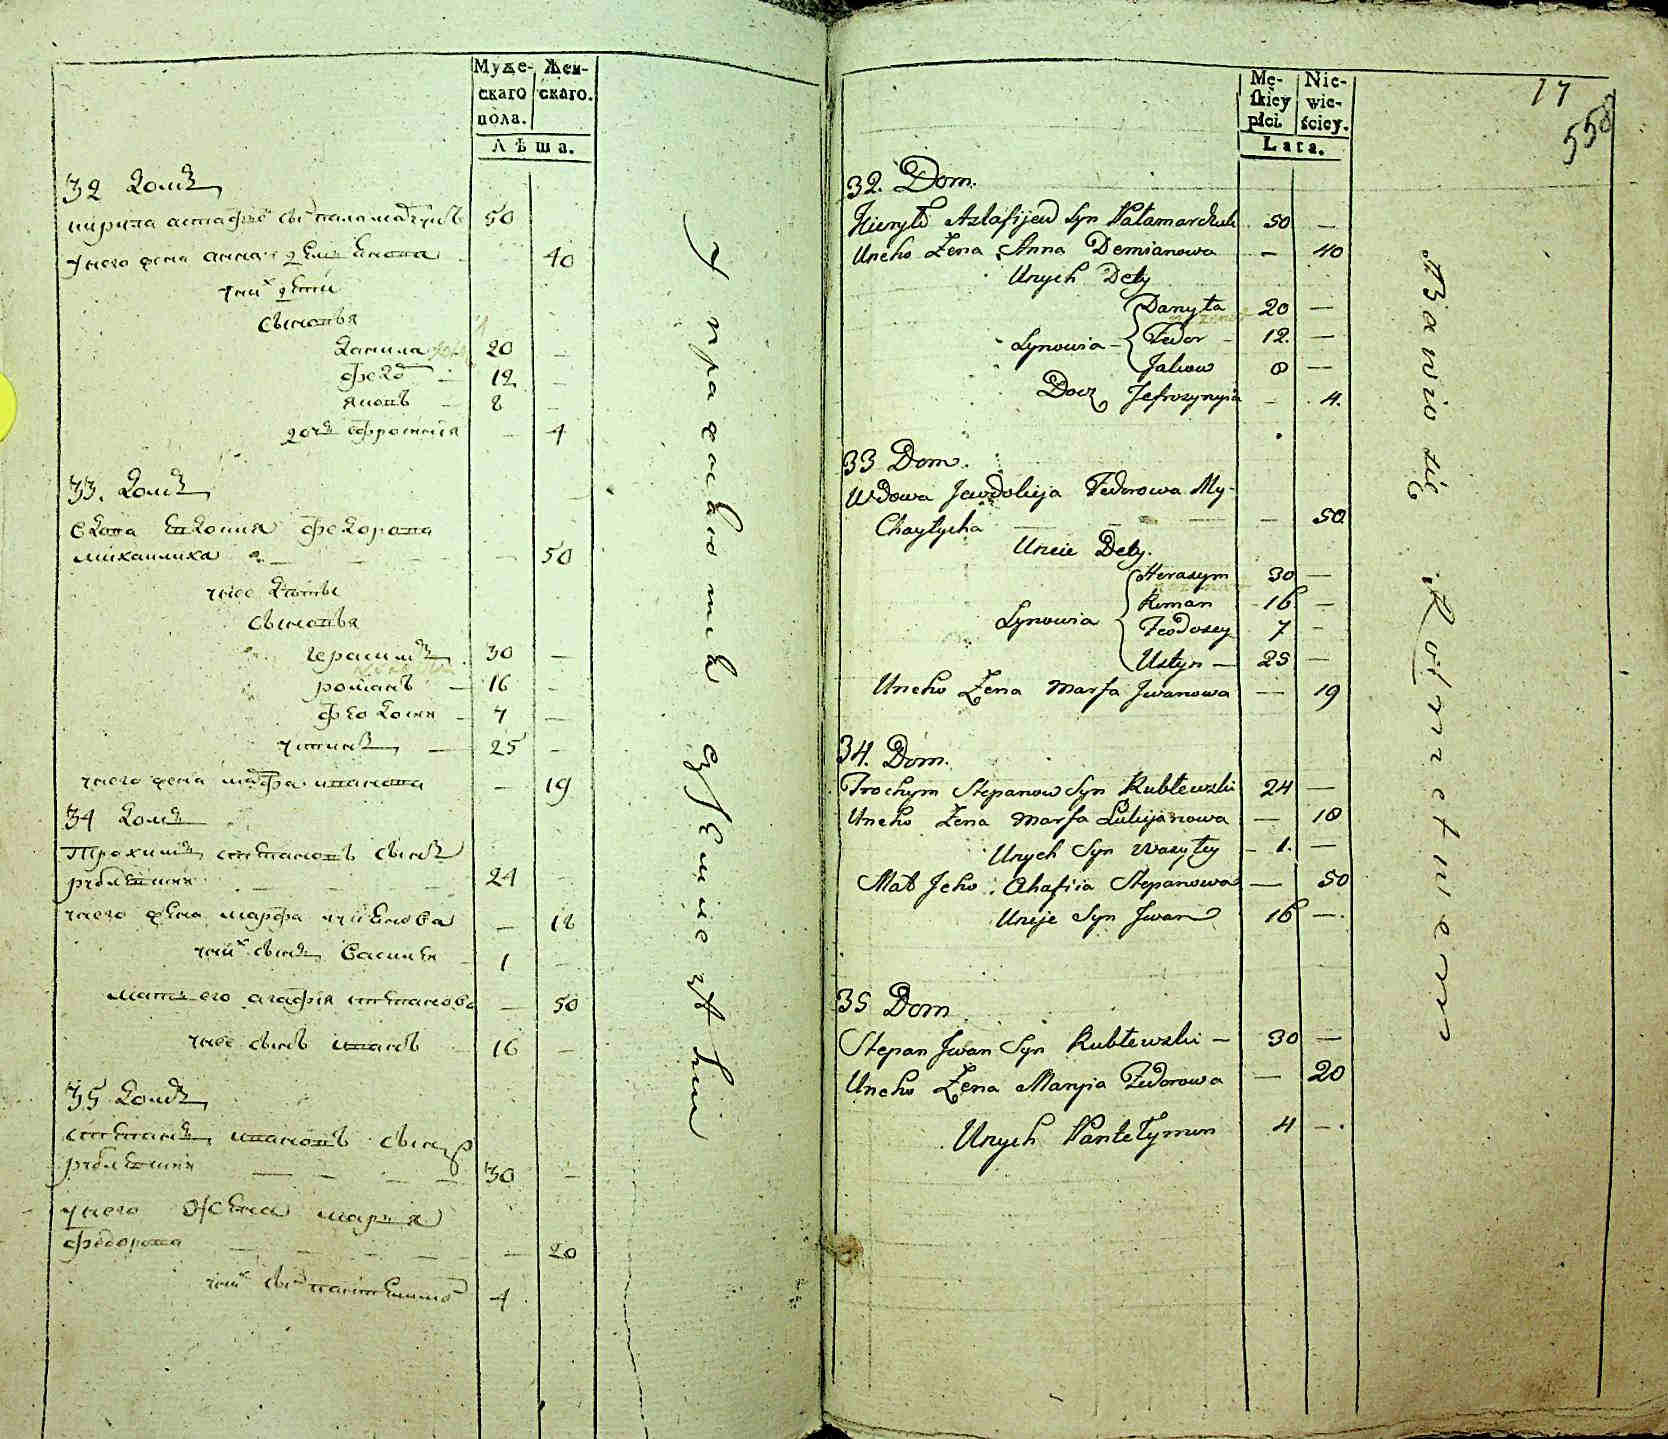 Мужескаго пола.
Женскаго.
Лѣта.
32 Домъ
кирила астафїевъ сынъ паламарчукъ 50
у него жена анна демьянова 40
у них дети
сыновья
данила 20 —
федор — 12 —
яковъ — 8 —
дочь ефросинія — 4
33. Домъ
вдова евдокия федорова
михаилиха — 50
у нее дѣти
сыновья
герасимъ 30 —
романъ — 16 —
феодосий — 7 —
устинъ — 25 —
у него жена марфа иванова — 19
34 Домъ
Трохимъ степановъ сынъ
рублевский 24 —
у него жена марфа лукиянова — 18
у них сынъ василей 1 —
мать его агафія степанова — 50
у нее сынъ иванъ 16 —
35 Домъ
степанъ ивановъ сынъ
рублевский 30 —
у него жена марья
федорова — 20
у них сын пантелимон 4
Упражняются въ земледѣлии
17
558
Męskiey płci
Niewieściey.
Lata.
32. Dom.
Kieryło Astafijew Syn Pałamarchuk 50 —
Uneho Żena Anna Demianowa — 40
Unych Dety
Danyła 20 —
Synowia — Fedor — 12. —
Jakow 8 —
Docz Jefrozynyia — 4.
33 Dom.
Wdowa Jewdokija Fedorowa My-
Chayłycha — — 50
Uneie Dety.
Herasym 30 —
Roman 16 —
Synowia Feodosey 7 —
Ustyn — 25 —
Uneho Żena Marfa Jwanowa — 19
34. Dom.
Trochym Stepanow Syn Rubłewski 24 —
Uneho Żena Marfa Lukijanowa — 18
Unych Syn Wasyłey — 1. —
Mat Jeho Ahafiia Stepanowa — 50
Uneje Syn Jwan 16 —.
35 Dom
Stepan Jwan Syn Rubłewski — 30 —
Uneho Żena Maryia Fedorowa — 20
Unych Pantełymon 4 —.
Bawio się Rolnictwem